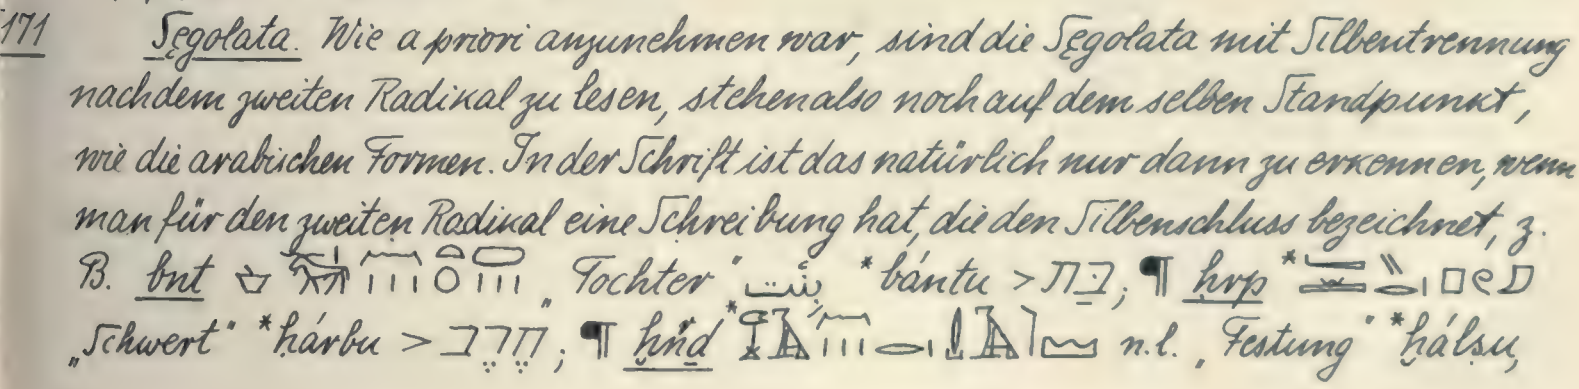 171 Sẹgolata. Wie a priori anzunehmen war, sind die Sẹgolata mit Silbentrennung
nach dem zweiten Radikal zu lesen, stehen also noch auf dem selben Standpunkt,
wie die arabischen Formen. In der Schrift ist das natürlich nur dann zu erkennen, wenn
man für den zweiten Radikal eine Schreibung hat, die den Silbenschluss bezeichnet, z.
B. bnt „Tochter" بِنْت *bántu > בַּת; ¶ ḥrp *
„Schwert" *ḥárbu > חֶרֶב; ¶ * n.l. „Festung" *ḫálṣu,